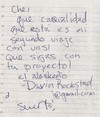 Che!
que casualidad
que este es mi
segundo viaje
con vos!
que sigas con
tu proyecto!
el
Darin Rockstad
@gmail.com
Suerte,